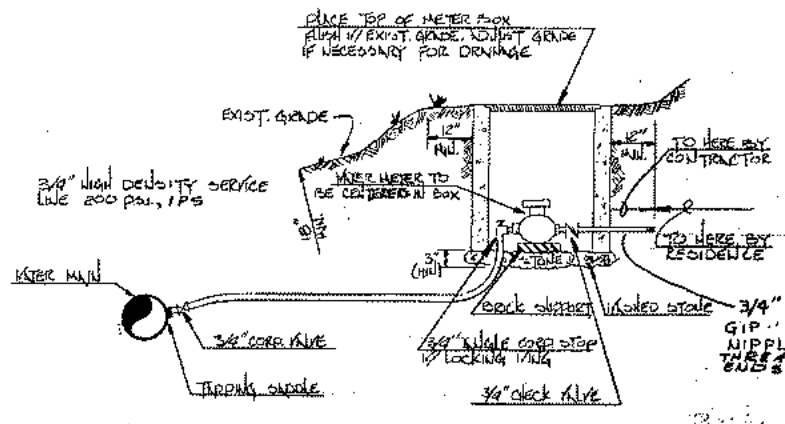 PLACE TOP OF METER BOX
FLUSH W/ EXIST. GRADE. ADJUST GRADE
IF NECESSARY FOR DRAINAGE
EXIST. GRADE
12"
MIN.
12"
MIN.
TO HERE BY
CONTRACTOR
3/4" HIGH DENSITY SERVICE
LINE 200 PSI, IPS
WATER METER TO
BE CENTERED IN BOX
18"
MIN.
TO HERE BY
RESIDENCE
3"
(MIN)
STONE
WATER MAIN
BRICK SUPPORT
WASHED STONE
3/4"
GIP
NIPPL
THREA
ENDS
3/4" CORP. VALVE
3/4" ANGLE CORP STOP
W/ LOCKING WING
TAPPING SADDLE
3/4" CHECK VALVE